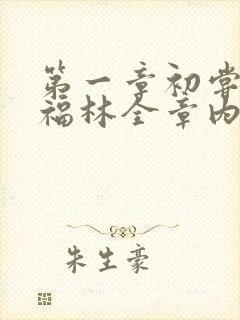 第一章初尝
福林全章内
朱生豪